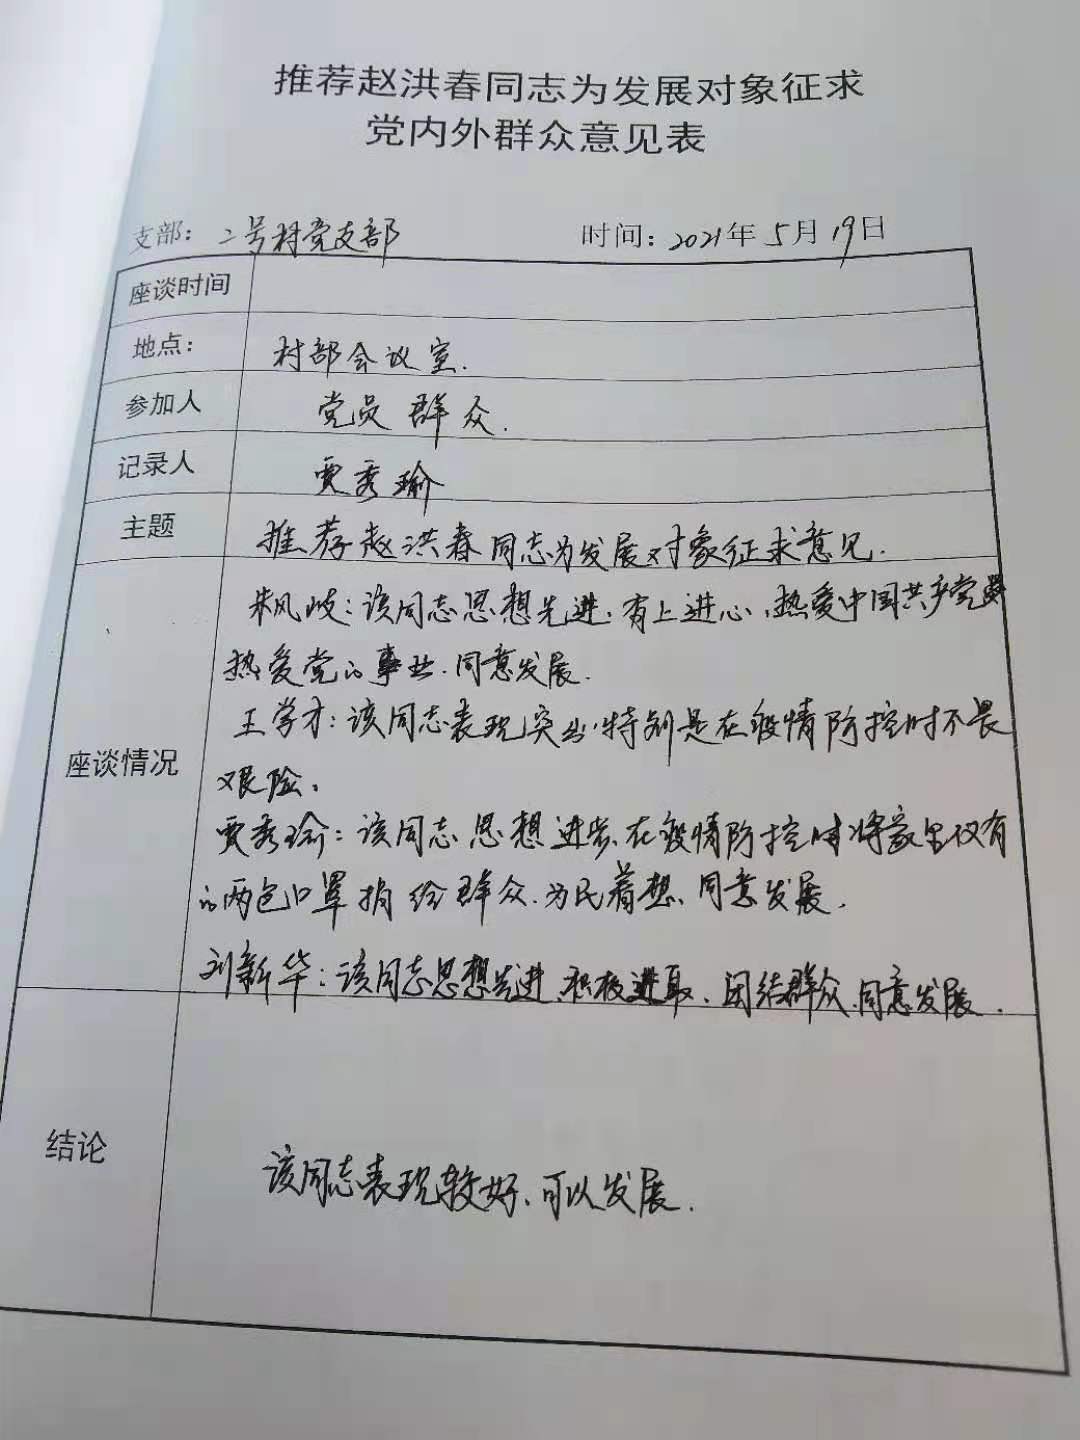 推荐赵洪春同志为发展对象征求
党内外群众意见表
支部：二号村党支部 时间：2021年5月19日
座谈时间
地点： 村部会议室.
参加人 党员 群众.
记录人 贾秀瑜
主题 推荐赵洪春同志为发展对象征求意见.
朱风岐：该同志思想先进，有上进心，热爱中国共产党
热爱党的事业.同意发展.
王学才：该同志表现突出，特别是在疫情防控时不畏
座谈情况
艰险，
贾秀瑜：该同志思想进步,在疫情防控时将家里仅有
的两包口罩捐给群众.为民着想、同意发展.
刘新华：该同志思想先进,积极进取、团结群众.同意发展.
结论 该同志表现较好、可以发展.